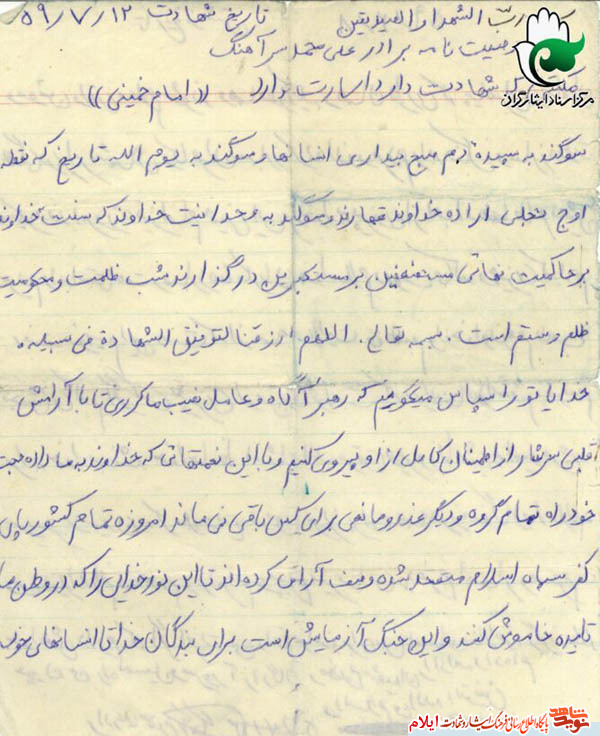 ربّ الشهدا و الصدیقین تاریخ شهادت ۵۹/۷/۱۲
وصیت نامه برادر علی محمد سرآهنگ
که شهادت دارد اسارت ندارد ((امام خمینی))
مرکز اسناد ایثارگران
سوگند به سپیده دم صبح بیداری انسانها و سوگند به یوم الله تاریخ که نقطه
اوج تجلی اراده خداوند قهارند و سوگند به وحدانیت خداوند که سنت خداوند
بر حاکمیت نهائی مستضعفین بر مستکبرین در گذار ند شب ظلمت و محکومیت
ظلم و ستم است. بسمه تعالی. اللهم ارزقنا توفیق الشهادة فی سبیله.
خدایا تو را سپاس میگویم که رهبر آگاه و عامل نصیب ما کردی تا با آرامش
قلبی سرشار از اطمینان کامل از او پیروی کنیم و با این نعمتهائی که خداوند به ما داده حجت
خود را تمام کرده و دیگر عذر و مانعی برای کسی باقی نمی ماند امروزه تمام کشورهای
کفر اسلام متحد شده و صف آرائی کرده اند تا این نور خدایی را که در وطن ما
تابیده خاموش کنند و این جنگ آزمایش است برای بندگان خدا تا انسانهای خوب
نوید شاهد پایگاه اطلاع رسانی فرهنگ ایثار و شهادت ایلام